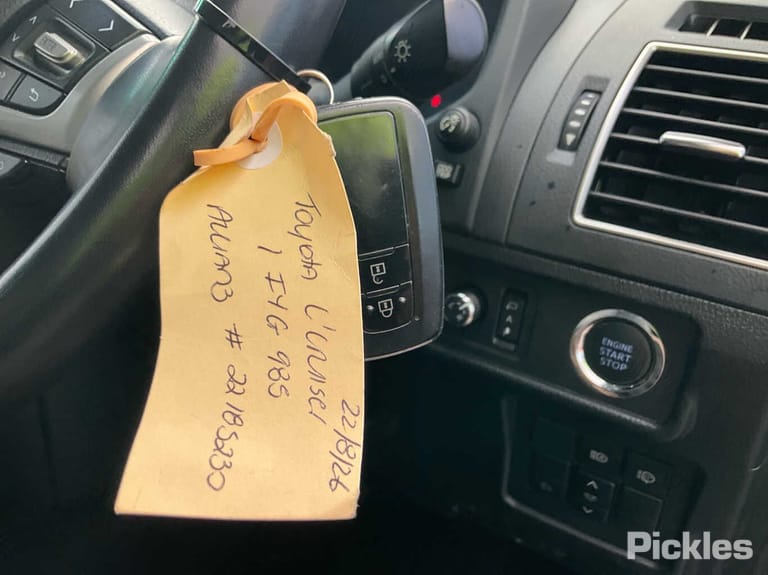 22/8/26
Toyota L'cruiser
1 IYG 985
Allianz # 22185230
ENGINE
START
STOP
Pickles